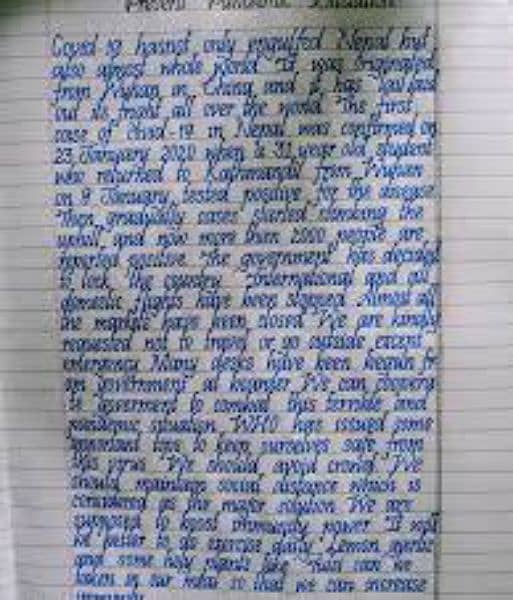 Present Pandemic Situation
Covid 19 hasnot only engulfed Nepal but
also almost whole world. It was originated
from Wuhan in China and it has
out its fright all over the world. The first
case of Covid-19 in Nepal was confirmed on
23 January 2020 when a 31 year old student
who returned to Kathmandu from Wuhan
on 9 January tested positive for the disease
Then gradually cases started climbing the
uphill and now more than 2000 people are
reported positive. The government has decided
to lock the country. International and all
domestic flights have been stopped. Almost all
the markets have been closed. We are kindly
requested not to travel or go outside except
emergency. Many desks have been
government at We can
to government to combat this terrible and
pandemic situation. WHO has issued some
important tips to keep ourselves safe from
this virus. We should avoid crowd. We
should maintain social distance which is
considered as the major solution. We are
supposed to boost immunity power. It
we to do exercise daily. Lemon,
and some holy plants like can be
taken in our meal so that we can increase
immunity